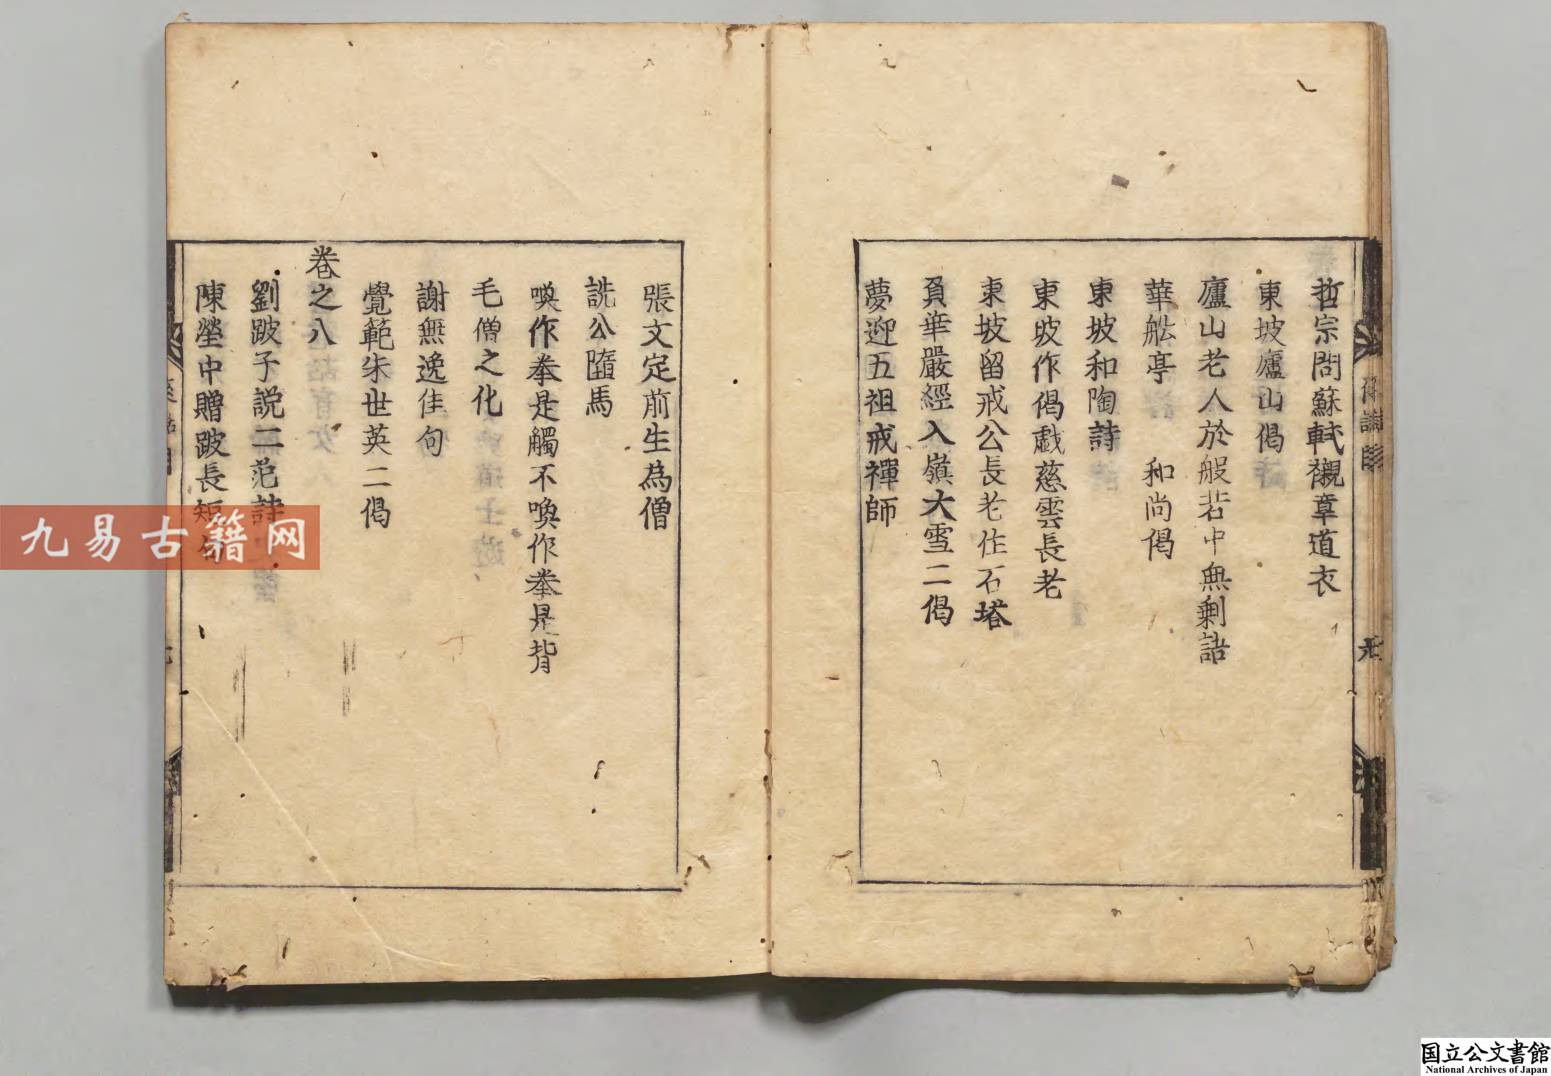 哲宗問蘇軾襯章道衣
東坡廬山偈
廬山老人於般若中無剩語
華舩亭　和尚偈
東坡和陶詩
東坡作偈戲慈雲長老
東坡留戒公長老住石塔
負華嚴經入嶺大雪二偈
夢迎五祖戒禪師
張文定前生為僧
詵公墮馬
喚作拳是觸不喚作拳是背
毛僧之化
謝無逸佳句
覺範朱世英二偈
卷之八
劉跛子説二范詩
陳瑩中贈跛長短句
九易古籍网
国立公文書館
National Archives of Japan